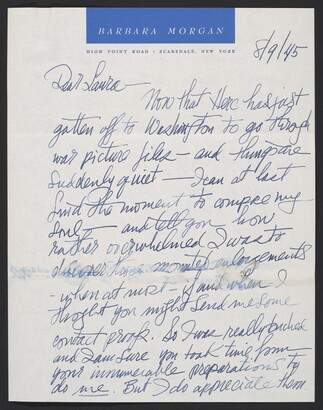 BARBARA MORGAN
HIGH POINT ROAD • SCARSDALE, NEW YORK
8/9/45
Dear Laura—
Now that Herc has just
gotten off to Washington to go through
war picture files — and things are
suddenly quiet — I can at last
find the moment to compose my
soul — and tell you how
rather overwhelmed I was to
discover these mounted enlargements
— when at most — if and when — I
thought you might send me some
contact proofs. So I was really touched
and I am sure you took time from
your innumerable preparations to
do me. But I do appreciate them